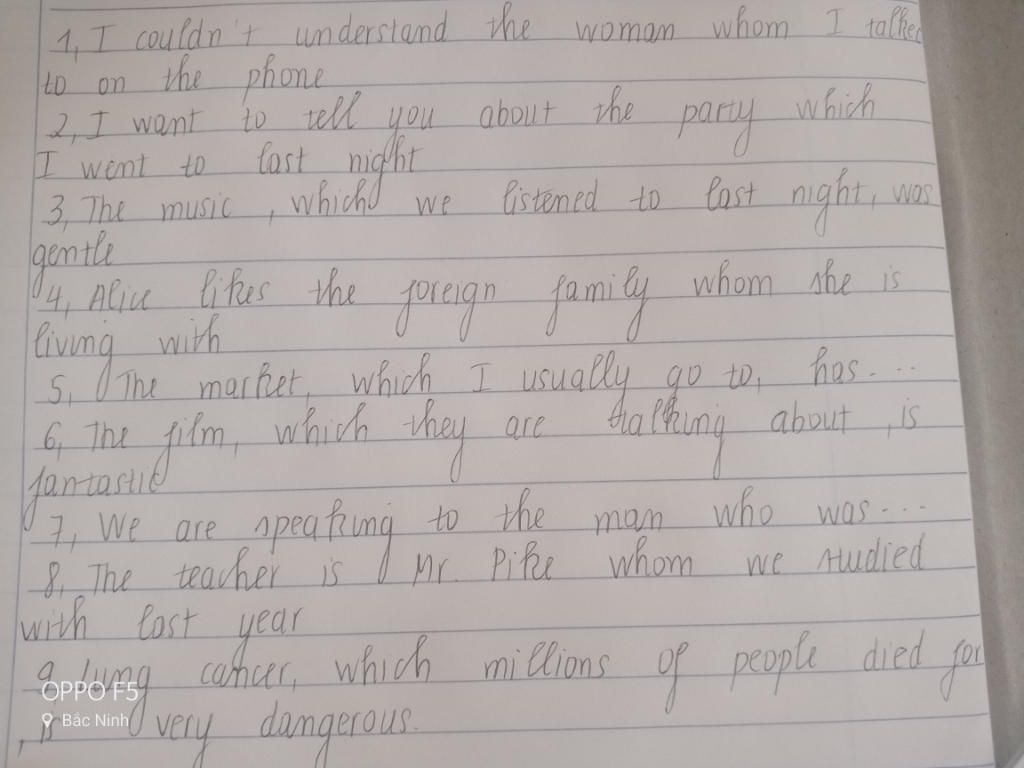 1, I couldn't understand the woman whom I talked
to on the phone
2, I want to tell you about the party which
I went to last night
3, The music, which we listened to last night, was
gentle
4, Alice likes the foreign family whom she is
living with
5, The market, which I usually go to, has....
6, The film, which they are talking about, is
fantastic
7, We are speaking to the man who was....
8, The teacher is Mr. Pike whom we studied
with last year
9, lung cancer, which millions of people died for
, is very dangerous.
OPPO F5
Bắc Ninh